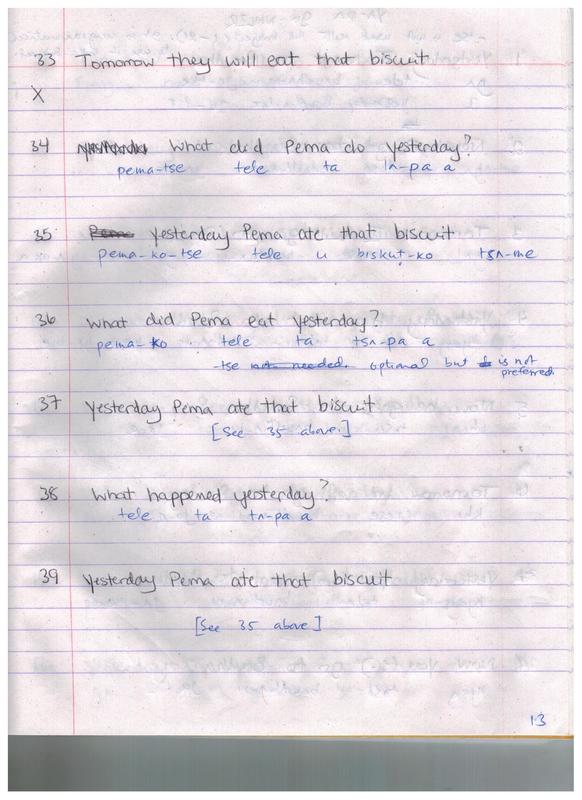 33 Tomorrow they will eat that biscuit
X
34 What did Pema do yesterday?
pema-tse tele ta lʌ-pa a
35 yesterday Pema ate that biscuit
pema-ko-tse tele u biskuṭ-ko tsʌ-me
36 What did Pema eat yesterday?
pema-ko tele ta tsʌ-pa a
-tse not needed. optional but is not preferred.
37 yesterday Pema ate that biscuit
[See 35 above.]
38 What happened yesterday?
tele ta tʌ-pa a
39 yesterday Pema ate that biscuit
[See 35 above]
13